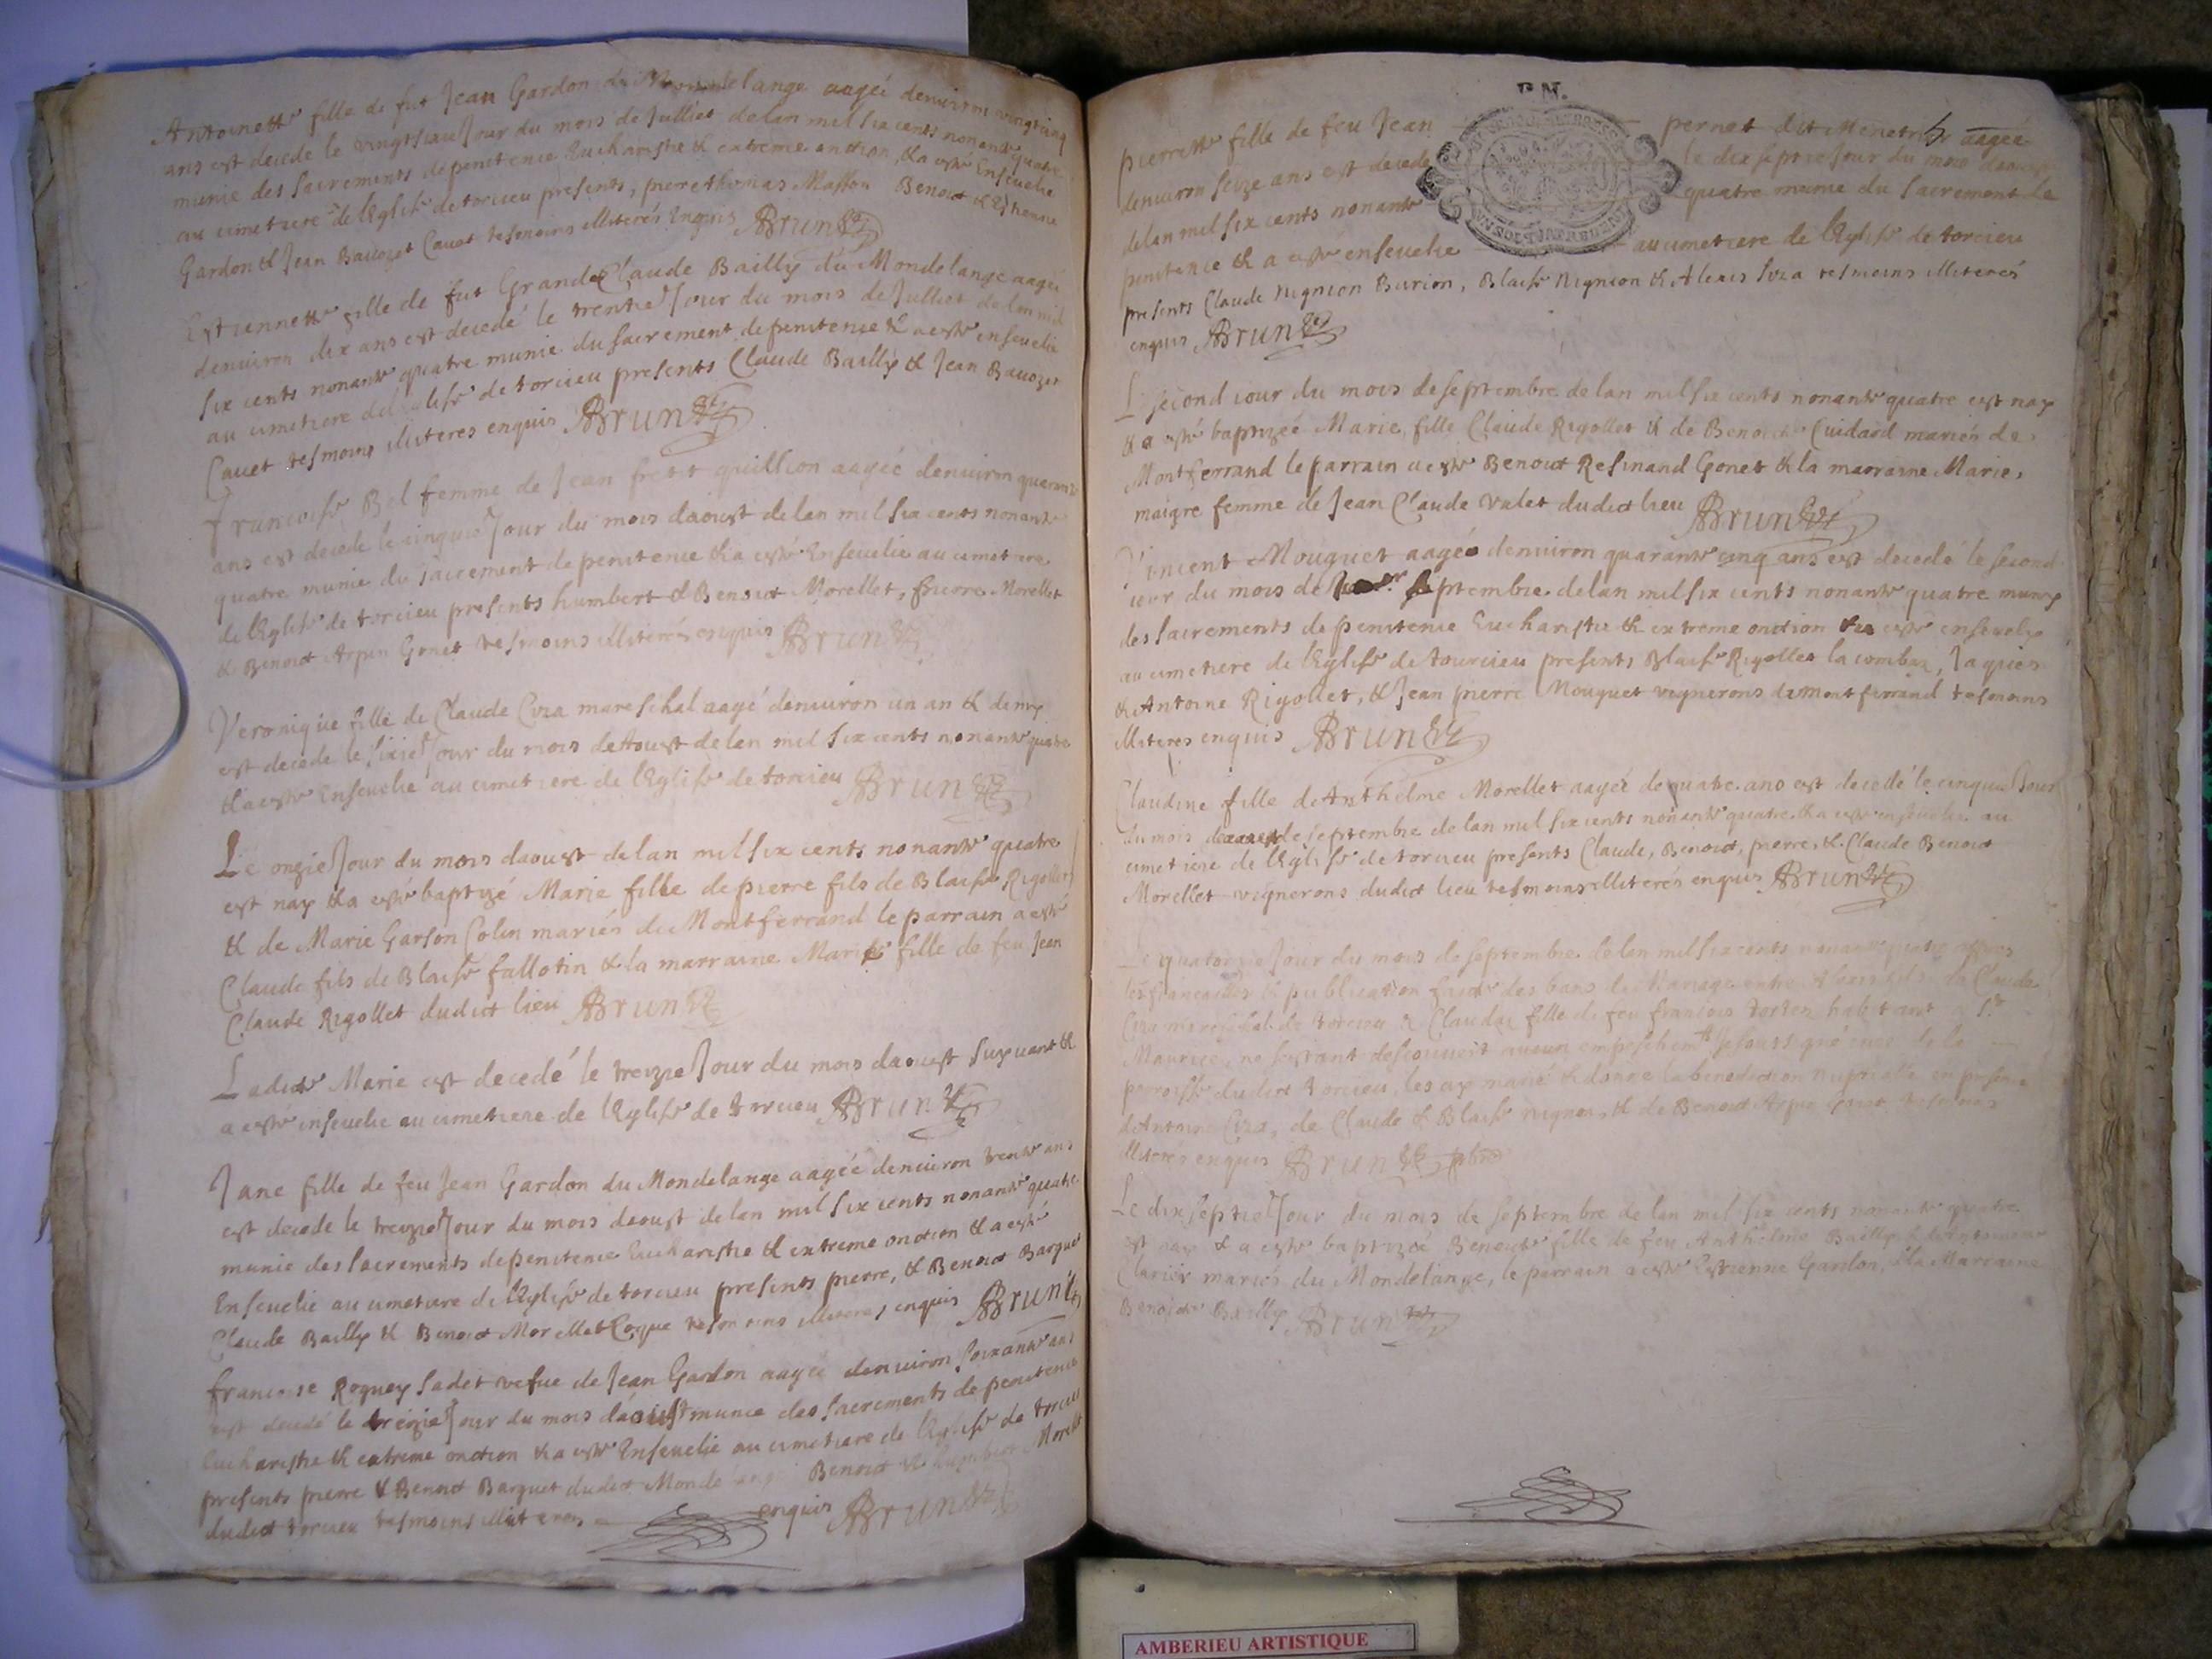 Antoinette fille de fut Jean Gardon du Mondelange aagée denuiron vingt cinq
ans est decede le vingtsixie Jour du mois de Julliet delan mil six cents nonante quatre
munie des sacrements depenitence Eucharistie & extreme onction, & a esté Enseuelie
au cimetiere de lEglise de torcieu presents, pierre thomas Masson Benoict & Estienne
Gardon & Jean Bauozet Cauet tesmoins illiterés Enquis Brun
Estiennette fille de fut Grand Claude Bailly du Mondelange aagée
denuiron dix ans est decedé le trentie Jour du mois de Julliet delan mil
six cents nonante quatre munie du sacrement depenitence & a esté enseuelie
au cimetiere de lEglise de torcieu presents Claude Bailly & Jean Bauozet
Cauet tesmoins illiteres enquis Brun
francoise Bel femme de Jean quillion aagée denuiron quarante
ans est decede le cinquie Jour du mois daoust delan mil six cents nonante
quatre munie du sacrement depenitence & a esté Enseuelie au cimetiere
de lEglise de torcieu presents humbert & Benoict Morellet, pierre Morellet
& Benoict Arpin Gonet tesmoins illiterés enquis Brun
Veronique fille de Claude Cura mareschal aagé denuiron un an & demy
est decede le sixie Jour du mois de Aoust delan mil six cents nonante quatre
& a esté Enseuelie au cimetiere de lEglise de torcieu Brun
Le onzie Jour du mois daoust delan mil six cents nonante quatre
est nay & a esté baptizé Marie fille de pierre fils de Blaise Rigollet
& de Marie Garson Colin mariés du Montferrand le parrain a esté
Claude fils de Blaise fallotin & la marraine Marie fille de feu Jean
Claude Rigollet dudict lieu Brun
Ladicte Marie est decedé le treizie Jour du mois daoust suyuant &
a esté enseuelie au cimetiere de lEglise de torcieu Brun
Jane fille de feu Jean Gardon du Mondelange aagée denuiron trente ans
est decede le treizie Jour du mois daoust delan mil six cents nonante quatre
munie des sacrements depenitence Eucharistie & extreme onction & a esté
Enseuelie au cimetiere de lEglise de torcieu presents pierre, & Benoict Barquet
Claude Bailly & Benoict Morellet Coque tesmoins illiteres enquis Brun
francoise Roguey Sadet vefue de Jean Gardon aagée denuiron soixante ans
est decedé le treizie Jour du mois daoust munie des sacrements depenitence
Eucharistie & extreme onction & a esté Enseuelie au cimetiere de lEglise de torcieu
presents pierre & Benoict Barquet dudict Mondelange Benoict & humbert Morellet
dudict torcieu tesmoins illiteres enquis Brun
pierrette fille de feu Jean pernet dit Menetrier aagée
denuiron seize ans est decede le dix septie Jour du mois daoust
delan mil six cents nonante quatre munie du sacrement de
penitence & a esté enseuelie au cimetiere de lEglise de torcieu
presents Claude Nignion Burion, Blaise Nignion & Alexis Cura tesmoins illiterés
enquis Brun
Le second iour du mois de septembre delan mil six cents nonante quatre est nay
& a esté baptizée Marie, fille Claude Rigollet & de Benoicte Cuidard mariés de
Montferrand le parrain a esté Benoict Refinand Gonet & la marraine Marie,
maigre femme de Jean Claude valet dudict lieu Brun
Vincent Mouguet aagée denuiron quarante cinq ans est decedé le second
iour du mois de septembre delan mil six cents nonante quatre muny
des sacrements de penitence Eucharistie & extreme onction & a esté enseuely
au cimetiere de lEglise de tourcieu presents Blaise Rigollet la combaz, Jaques
& Antoine Rigollet, & Jean pierre Mouguet vignerons de montferrand tesmoins
illiteres enquis Brun
Claudine fille de Anthelme Morellet aagée de quatre ans est decedé le cinquie Jour
du mois de septembre delan mil six cents nonante quatre & a esté enseuelie au
cimetiere de lEglise de torcieu presents Claude, Benoict, pierre, & Claude Benoict
Morellet vignerons dudict lieu tesmoins illiterés enquis Brun
Le quatorzie Jour du mois de septembre delan mil six cents nonante quatre apres
les fiancailles & publication faicte des bans de Mariage entre Alexis fils de Claude
Cura mareschal de torcieu & Claudaz fille de feu francois habitant a St
Maurice, ne sestant descouuert aucun empeschemt Je soussigné curé de la
parroisse dudict torcieu, les ay marié & donné la benediction nuptialle en presence
de Antoine Cura, de Claude & Blaise nignon, & de Benoict Arpin Gonet tesmoins
illiteres enquis Brun pbre
Le dix septie Jour du mois de septembre delan mil six cents nonante quatre
est nay & a esté baptizée Benoicte fille de feu Anthelme Bailly & de Antoinette
Clarier mariés du Mondelange, le parrain a esté Estienne Gardon, & la Marraine
Benoicte Bailly Brun
AMBERIEU ARTISTIQUE